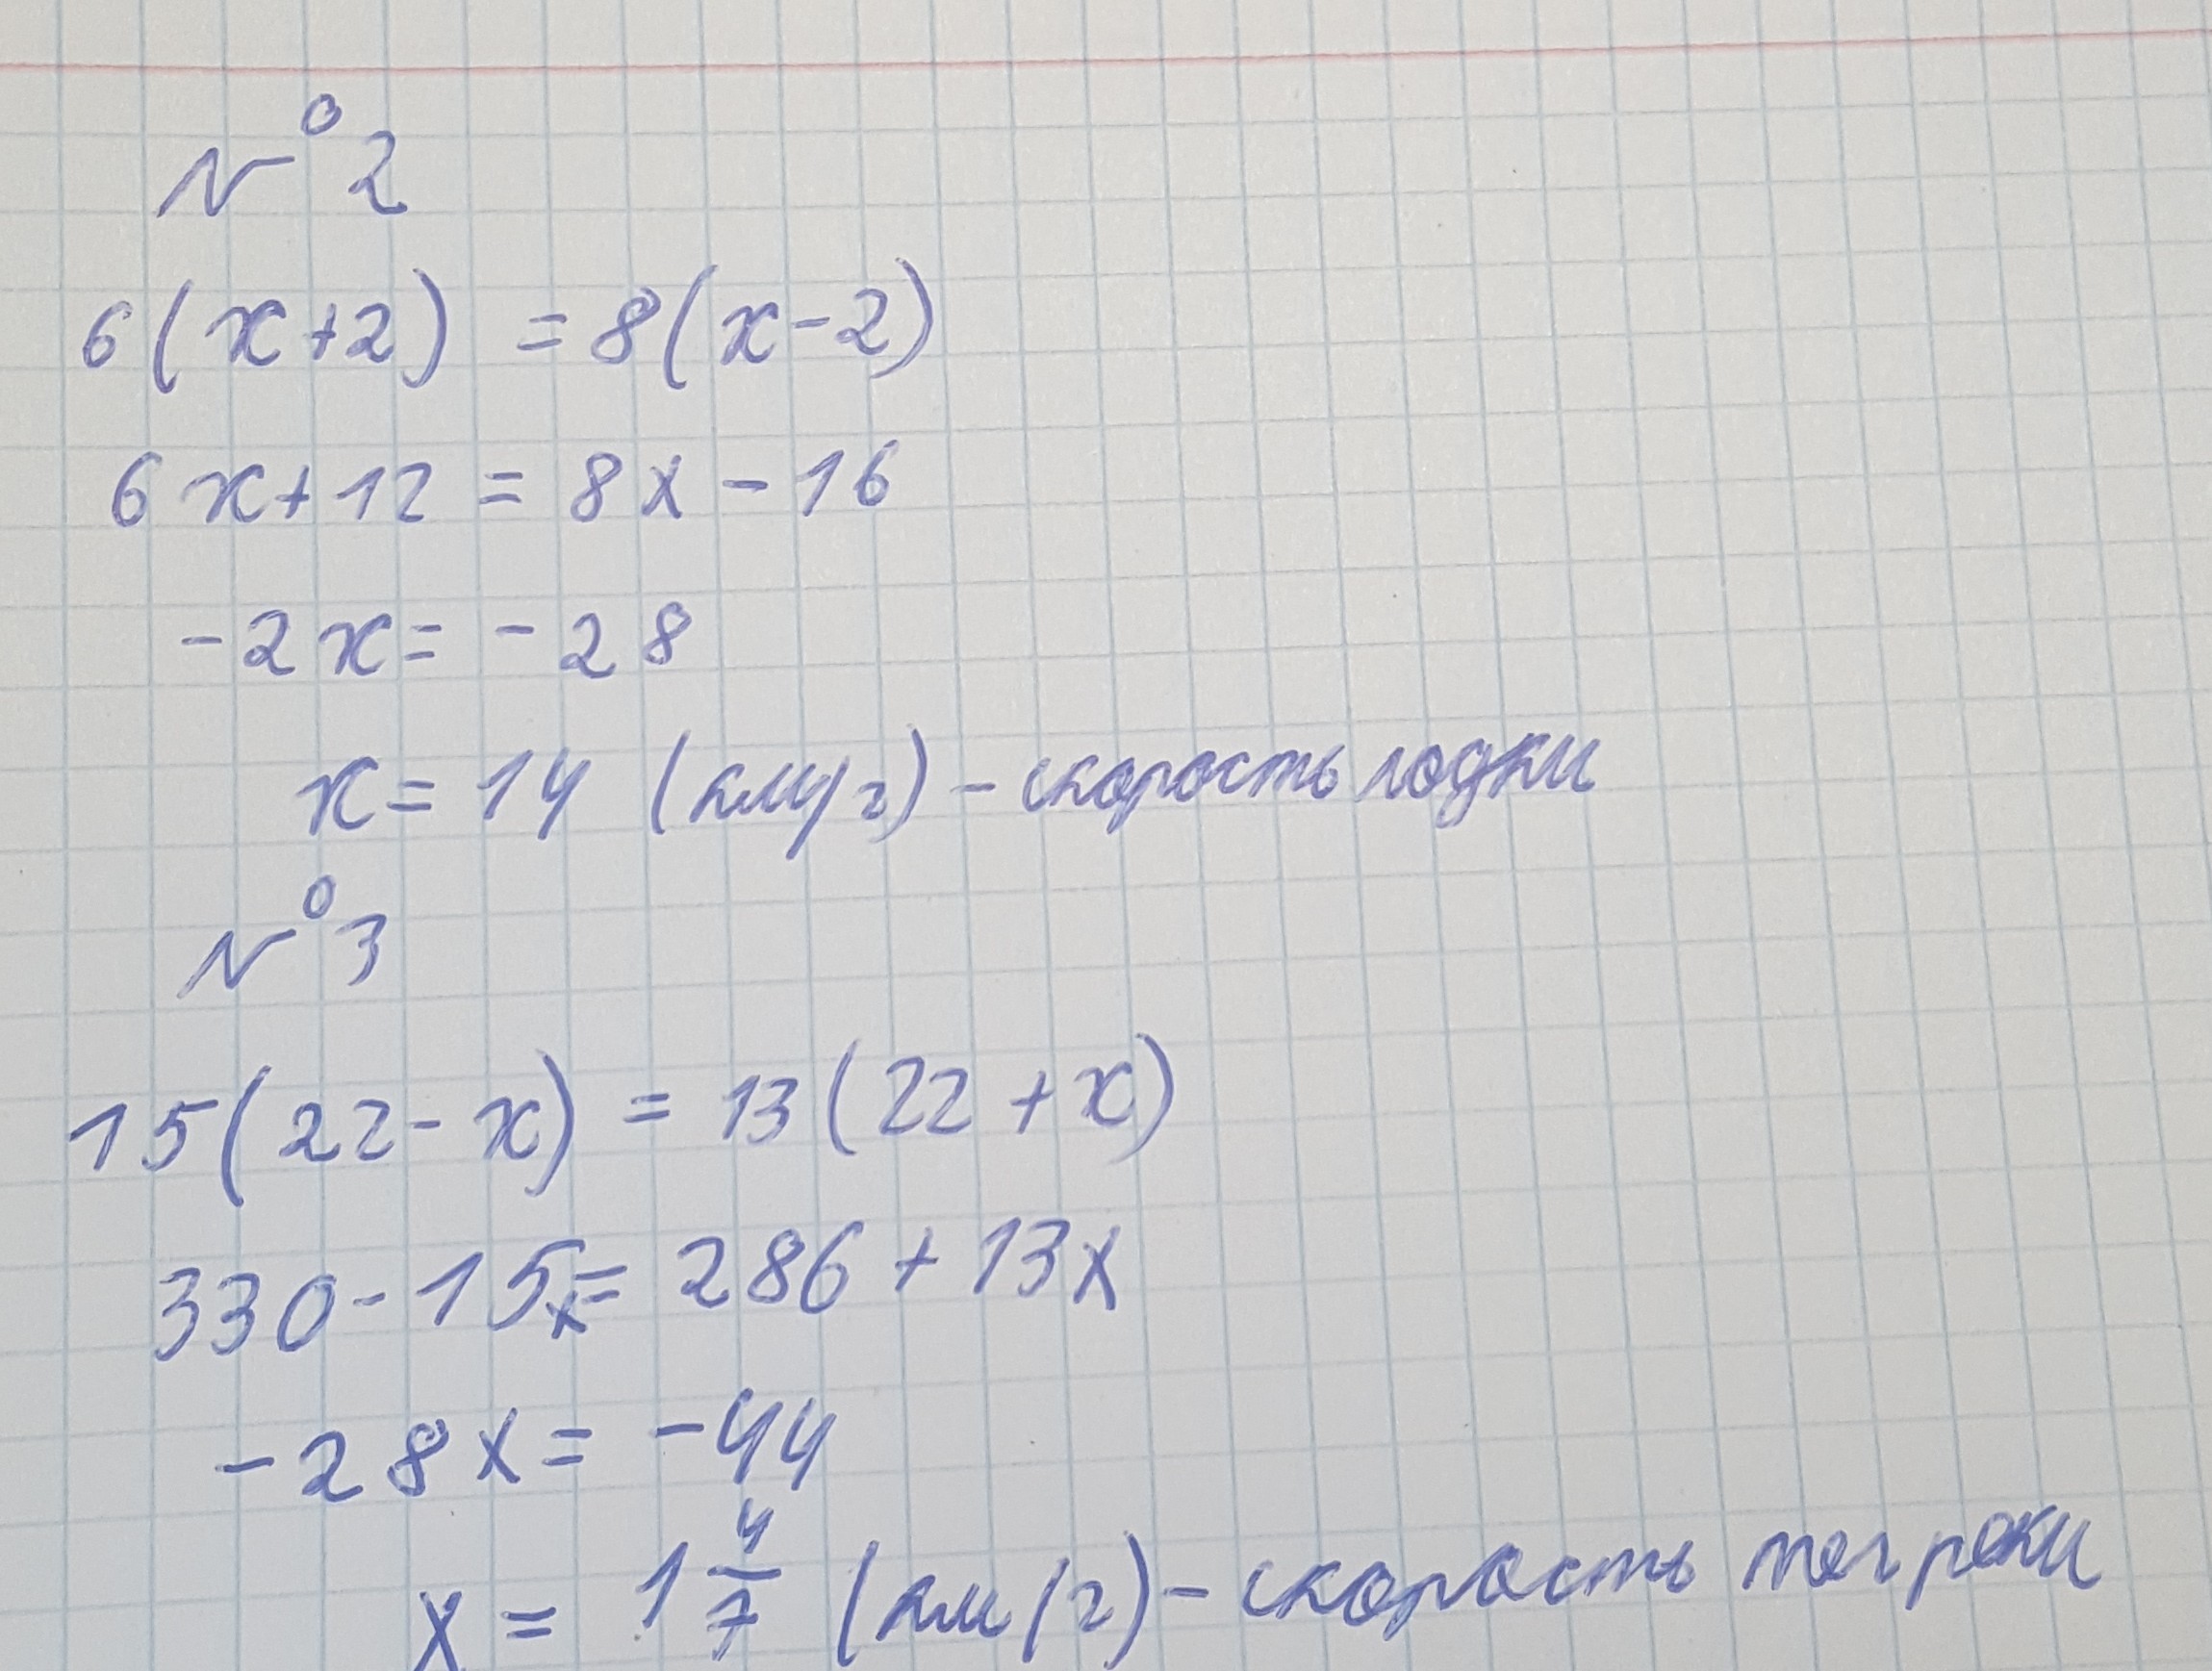 № 2
6(x+2) = 8(x-2)
6x+12 = 8x-16
-2x = -28
x = 14 (км/ч) - скорость лодки
№ 3
15(22-x) = 13(22+x)
330-15x = 286+13x
-28x = -44
x = 1 4/7 (км/ч) - скорость теч реки